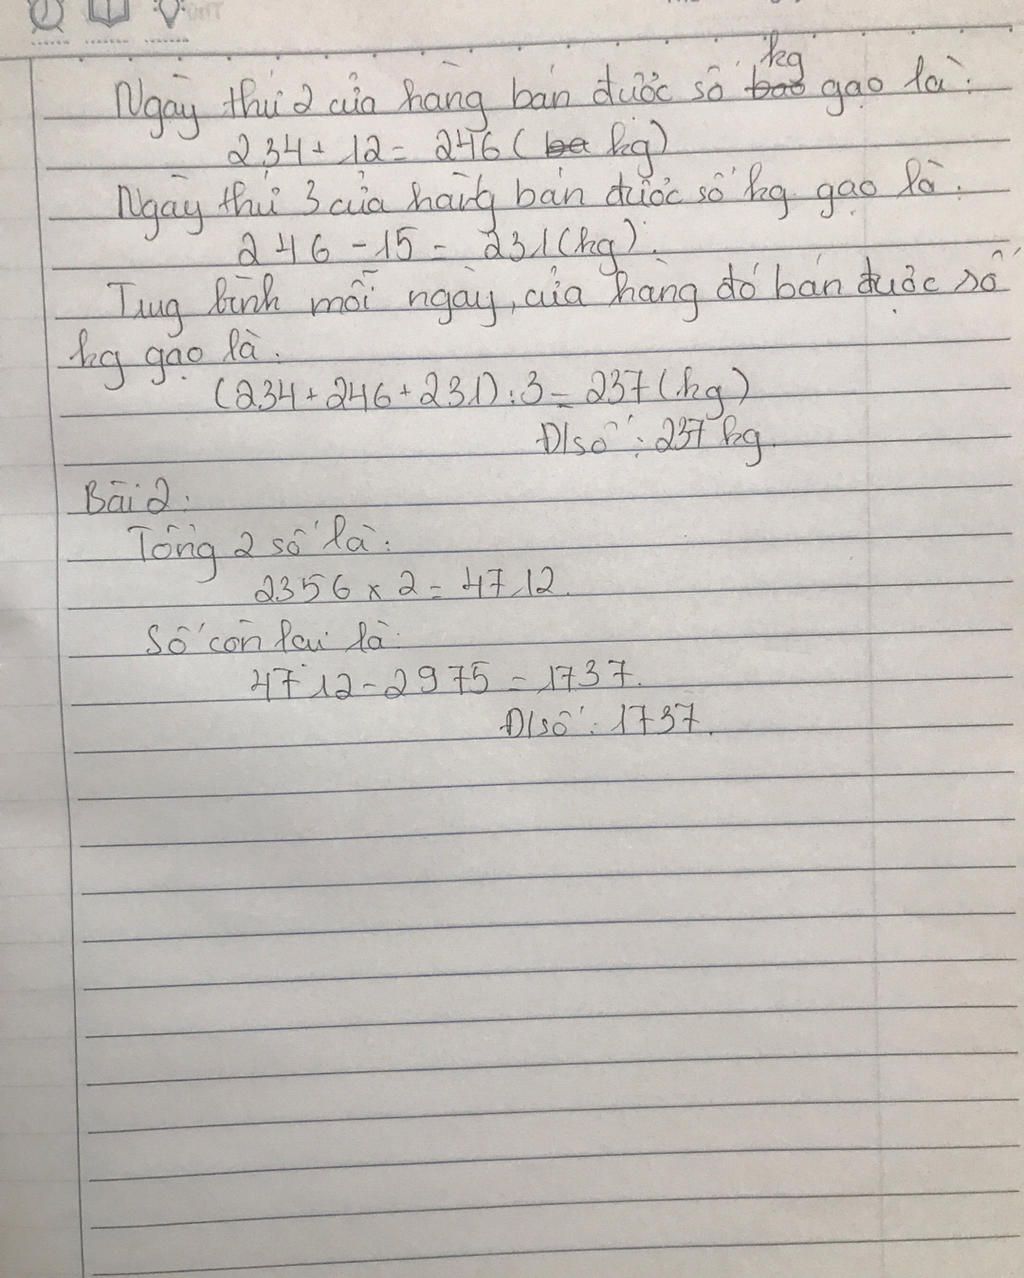 Ngày thứ 2 cửa hàng bán được số kg gạo là:
234 + 12 = 246 (kg)
Ngày thứ 3 cửa hàng bán được số kg gạo là:
246 - 15 = 231 (kg).
Trung bình mỗi ngày, cửa hàng đó bán được số
kg gạo là:
(234 + 246 + 231) : 3 = 237 (kg)
Đ/số: 237 kg.
Bài 2:
Tổng 2 số là:
2356 x 2 = 4712.
Số còn lại là:
4712 - 2975 = 1737.
Đ/số: 1737.